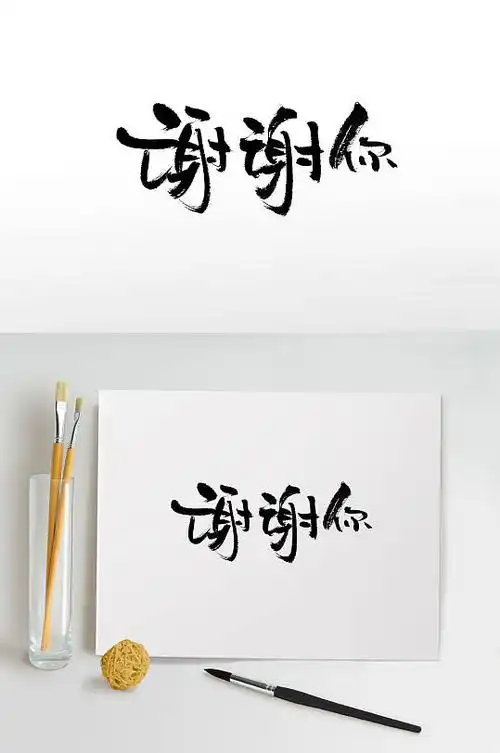 谢谢你
谢谢你